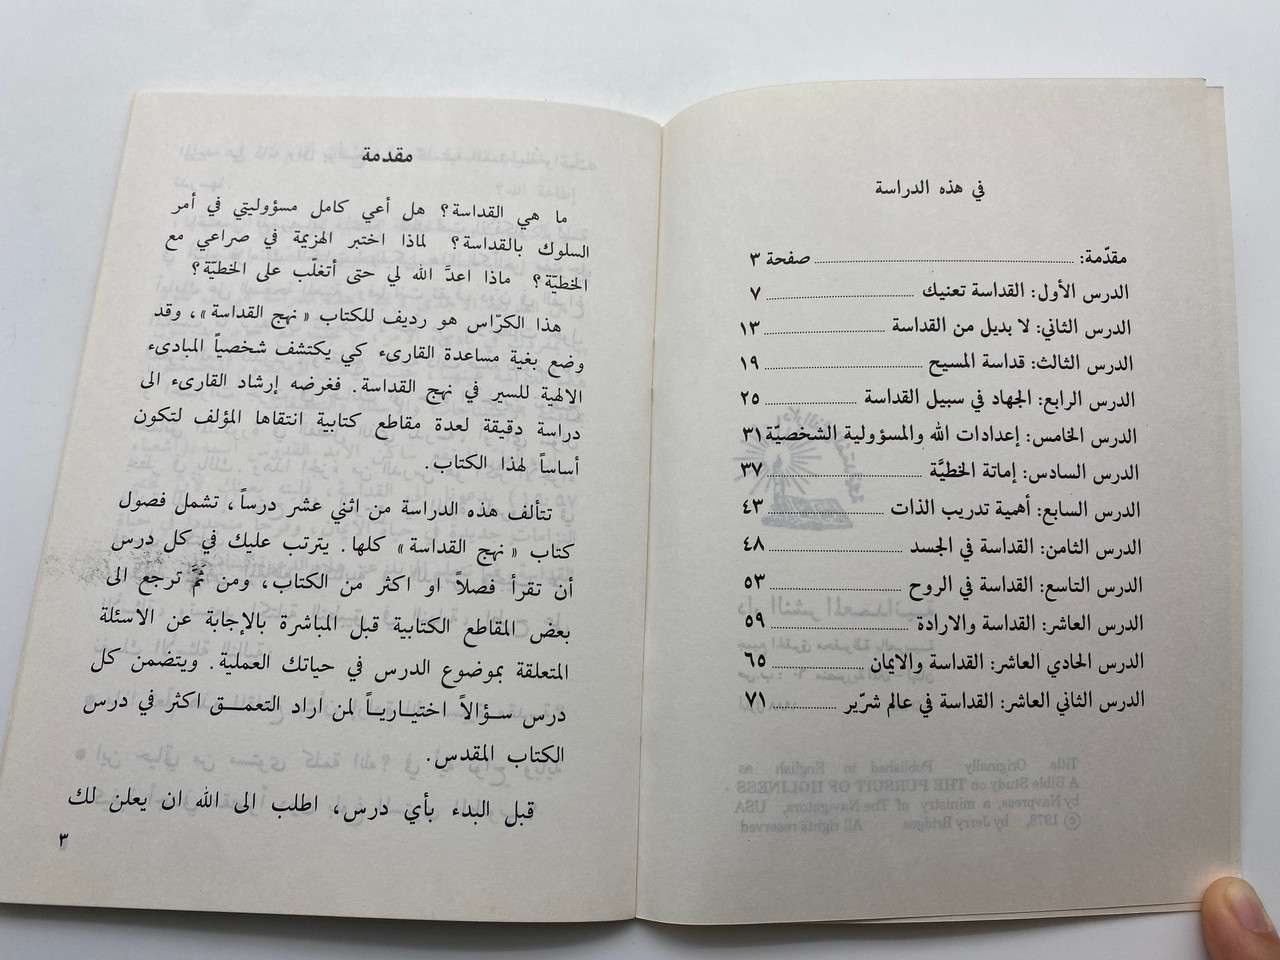 في هذه الدراسة
مقدّمة: صفحة ٣
الدرس الأول: القداسة تعنيك ٧
الدرس الثاني: لا بديل من القداسة ١٣
الدرس الثالث: قداسة المسيح ١٩
الدرس الرابع: الجهاد في سبيل القداسة ٢٥
الدرس الخامس: إعدادات الله والمسؤولية الشخصيّة ٣١
الدرس السادس: إماتة الخطيَّة ٣٧
الدرس السابع: أهمية تدريب الذات ٤٣
الدرس الثامن: القداسة في الجسد ٤٨
الدرس التاسع: القداسة في الروح ٥٣
الدرس العاشر: القداسة والارادة ٥٩
الدرس الحادي العاشر: القداسة والايمان ٦٥
الدرس الثاني العاشر: القداسة في عالم شرّير ٧١
Title Originally Published in English as
A Bible Study on THE PURSUIT OF HOLINESS
by Navpress, a ministry of The Navigators, USA
© 1978, by Jerry Bridges All rights reserved
مقدمة
ما هي القداسة؟ هل أعي كامل مسؤوليتي في أمر
السلوك بالقداسة؟ لماذا اختبر الهزيمة في صراعي مع
الخطيّة؟ ماذا اعدَّ الله لي حتى أتغلّب على الخطيّة؟
هذا الكرّاس هو رديف للكتاب «نهج القداسة»، وقد
وضع بغية مساعدة القارىء كي يكتشف شخصياً المبادىء
الالهية للسير في نهج القداسة. فغرضه إرشاد القارىء الى
دراسة دقيقة لعدة مقاطع كتابية انتقاها المؤلف لتكون
أساساً لهذا الكتاب.
تتألف هذه الدراسة من اثني عشر درساً، تشمل فصول
كتاب «نهج القداسة» كلها. يترتب عليك في كل درس
أن تقرأ فصلاً او اكثر من الكتاب، ومن ثمَّ ترجع الى
بعض المقاطع الكتابية قبل المباشرة بالإجابة عن الاسئلة
المتعلقة بموضوع الدرس في حياتك العملية. ويتضمن كل
درس سؤالاً اختيارياً لمن اراد التعمق اكثر في درس
الكتاب المقدس.
قبل البدء بأي درس، اطلب الى الله ان يعلن لك
٣